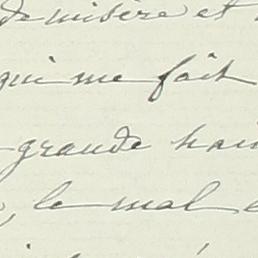 de misère et
qui me fait
grande hai
le mal